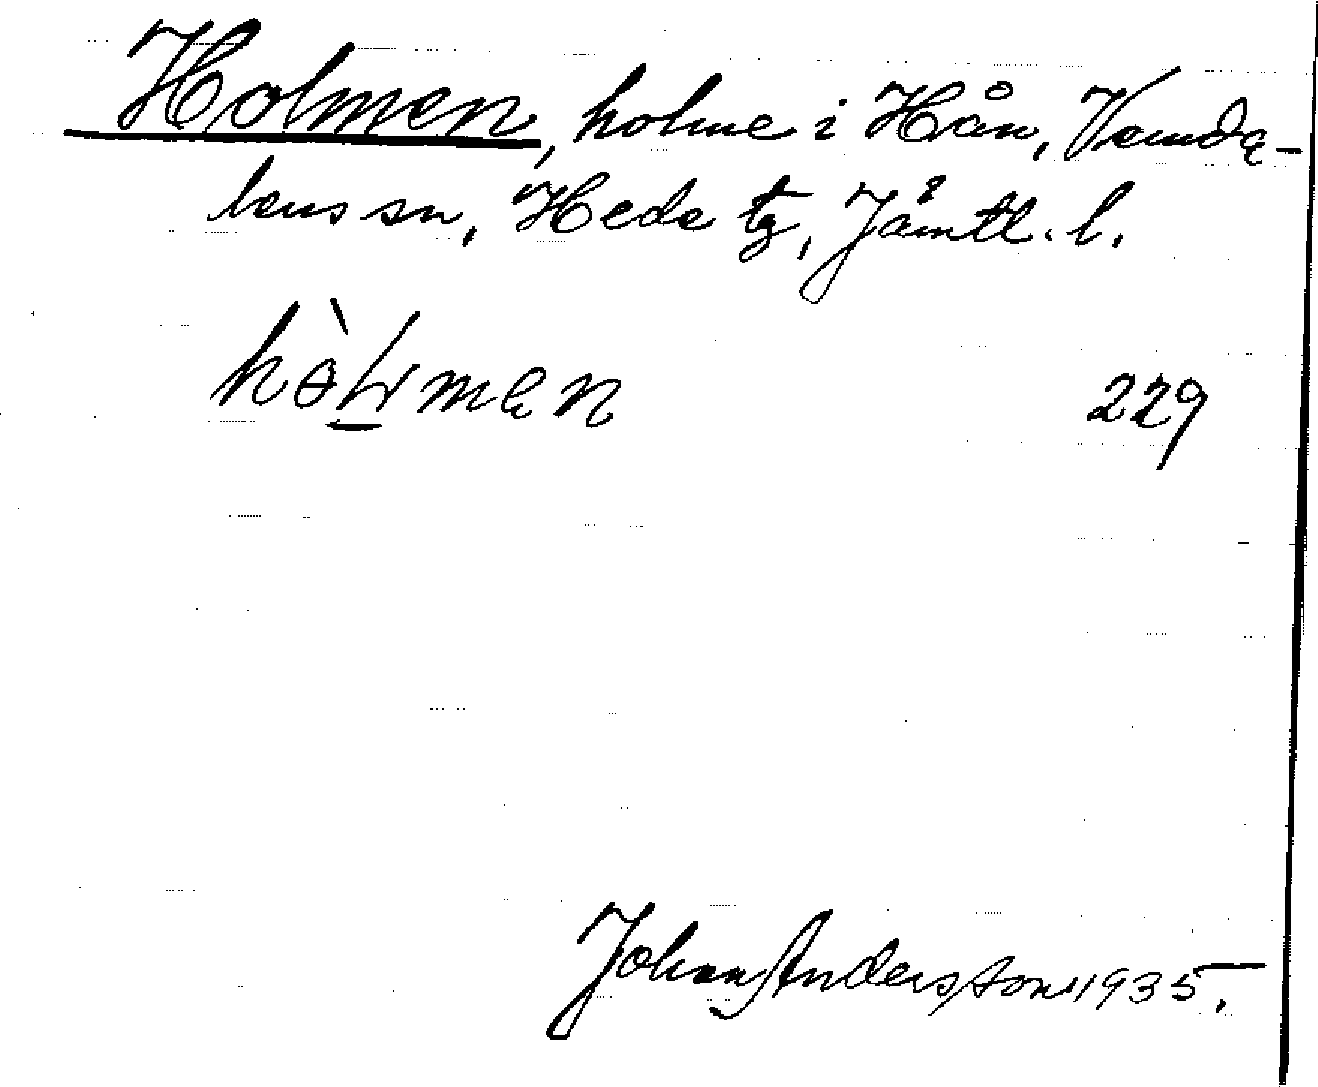 Holmen, holme i Hån, Vemda-
lens sn, Hede tg, Jämtl. l.
229
Johan Andersson 1935.